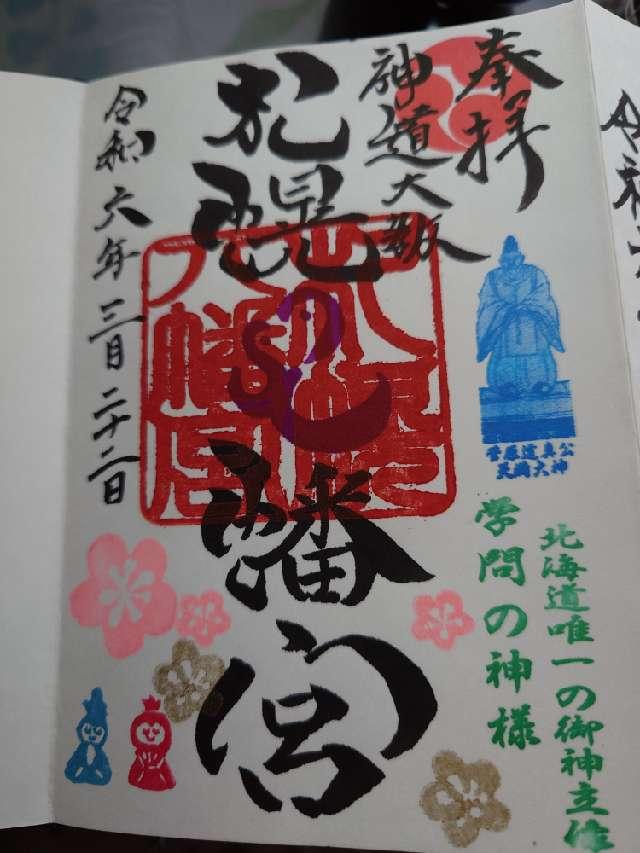 奉拝
神道大教
札幌
八幡宮
令和六年三月二十二日
札幌
八幡宮
菅原道真公
天満大神
学問の神様
北海道唯一の御神立像